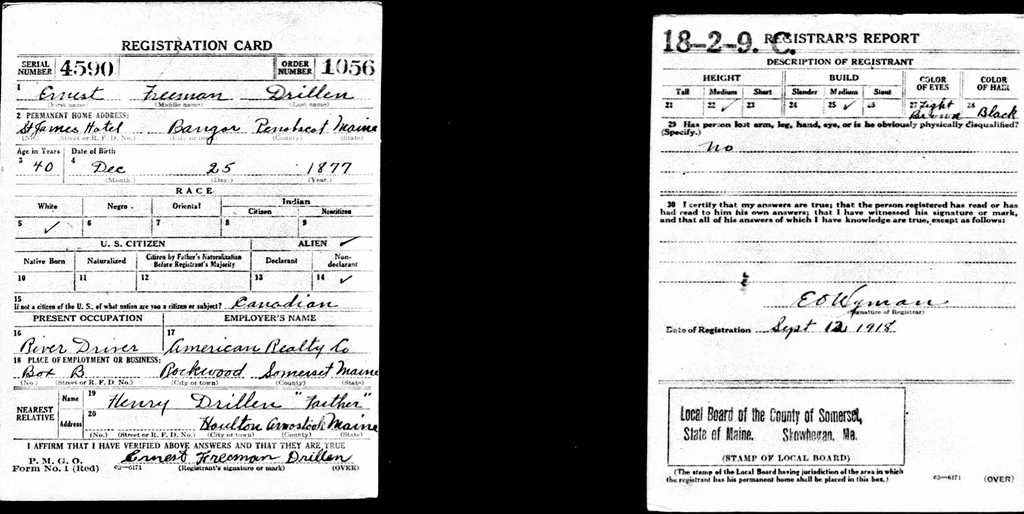 REGISTRATION CARD
SERIAL NUMBER 4590 ORDER NUMBER 1056
1 Ernest Freeman Drillen
(First name) (Middle name) (Last name)
2 PERMANENT HOME ADDRESS:
St James Hotel Bangor Penobscot Maine
(No.) (Street or R. F. D. No.) (City or town) (County) (State)
Age in Years Date of Birth
3 40 4 Dec 25 1877
(Month.) (Day.) (Year.)
RACE
White Negro Oriental Indian
Citizen Noncitizen
5 ✓ 6 7 8 9
U. S. CITIZEN ALIEN ✓
Native Born Naturalized Citizen by Father's Naturalization Before Registrant's Majority Declarant Non-declarant
10 11 12 13 14 ✓
15
If not a citizen of the U. S., of what nation are you a citizen or subject? Canadian
PRESENT OCCUPATION EMPLOYER'S NAME
16 River Driver 17 American Realty Co
18 PLACE OF EMPLOYMENT OR BUSINESS:
Box B Rockwood Somerset Maine
(No.) (Street or R. F. D. No.) (City or town) (County) (State)
NEAREST RELATIVE
Name 19 Henry Drillen "Father"
Address 20 Houlton Aroostook Maine
(No.) (Street or R. F. D. No.) (City or town) (County) (State)
I AFFIRM THAT I HAVE VERIFIED ABOVE ANSWERS AND THAT THEY ARE TRUE
P. M. G. O.
Form No. 1 (Red) 03—6171 Ernest Freeman Drillen
(Registrant's signature or mark) (OVER)
18-2-9. C. REGISTRAR'S REPORT
DESCRIPTION OF REGISTRANT
HEIGHT BUILD COLOR OF EYES COLOR OF HAIR
Tall Medium Short Slender Medium Stout
21 22 ✓ 23 24 25 ✓ 26 27 Light Brown 28 Black
29 Has person lost arm, leg, hand, eye, or is he obviously physically disqualified?
(Specify.)
no
30 I certify that my answers are true; that the person registered has read or has
had read to him his own answers; that I have witnessed his signature or mark,
and that all of his answers of which I have knowledge are true, except as follows:
E O Wyman
(Signature of Registrar)
Date of Registration Sept 12 1918
Local Board of the County of Somerset,
State of Maine. Skowhegan, Me.
(STAMP OF LOCAL BOARD)
(The stamp of the Local Board having jurisdiction of the area in which
the registrant has his permanent home shall be placed in this box.)
03—6171 (OVER)